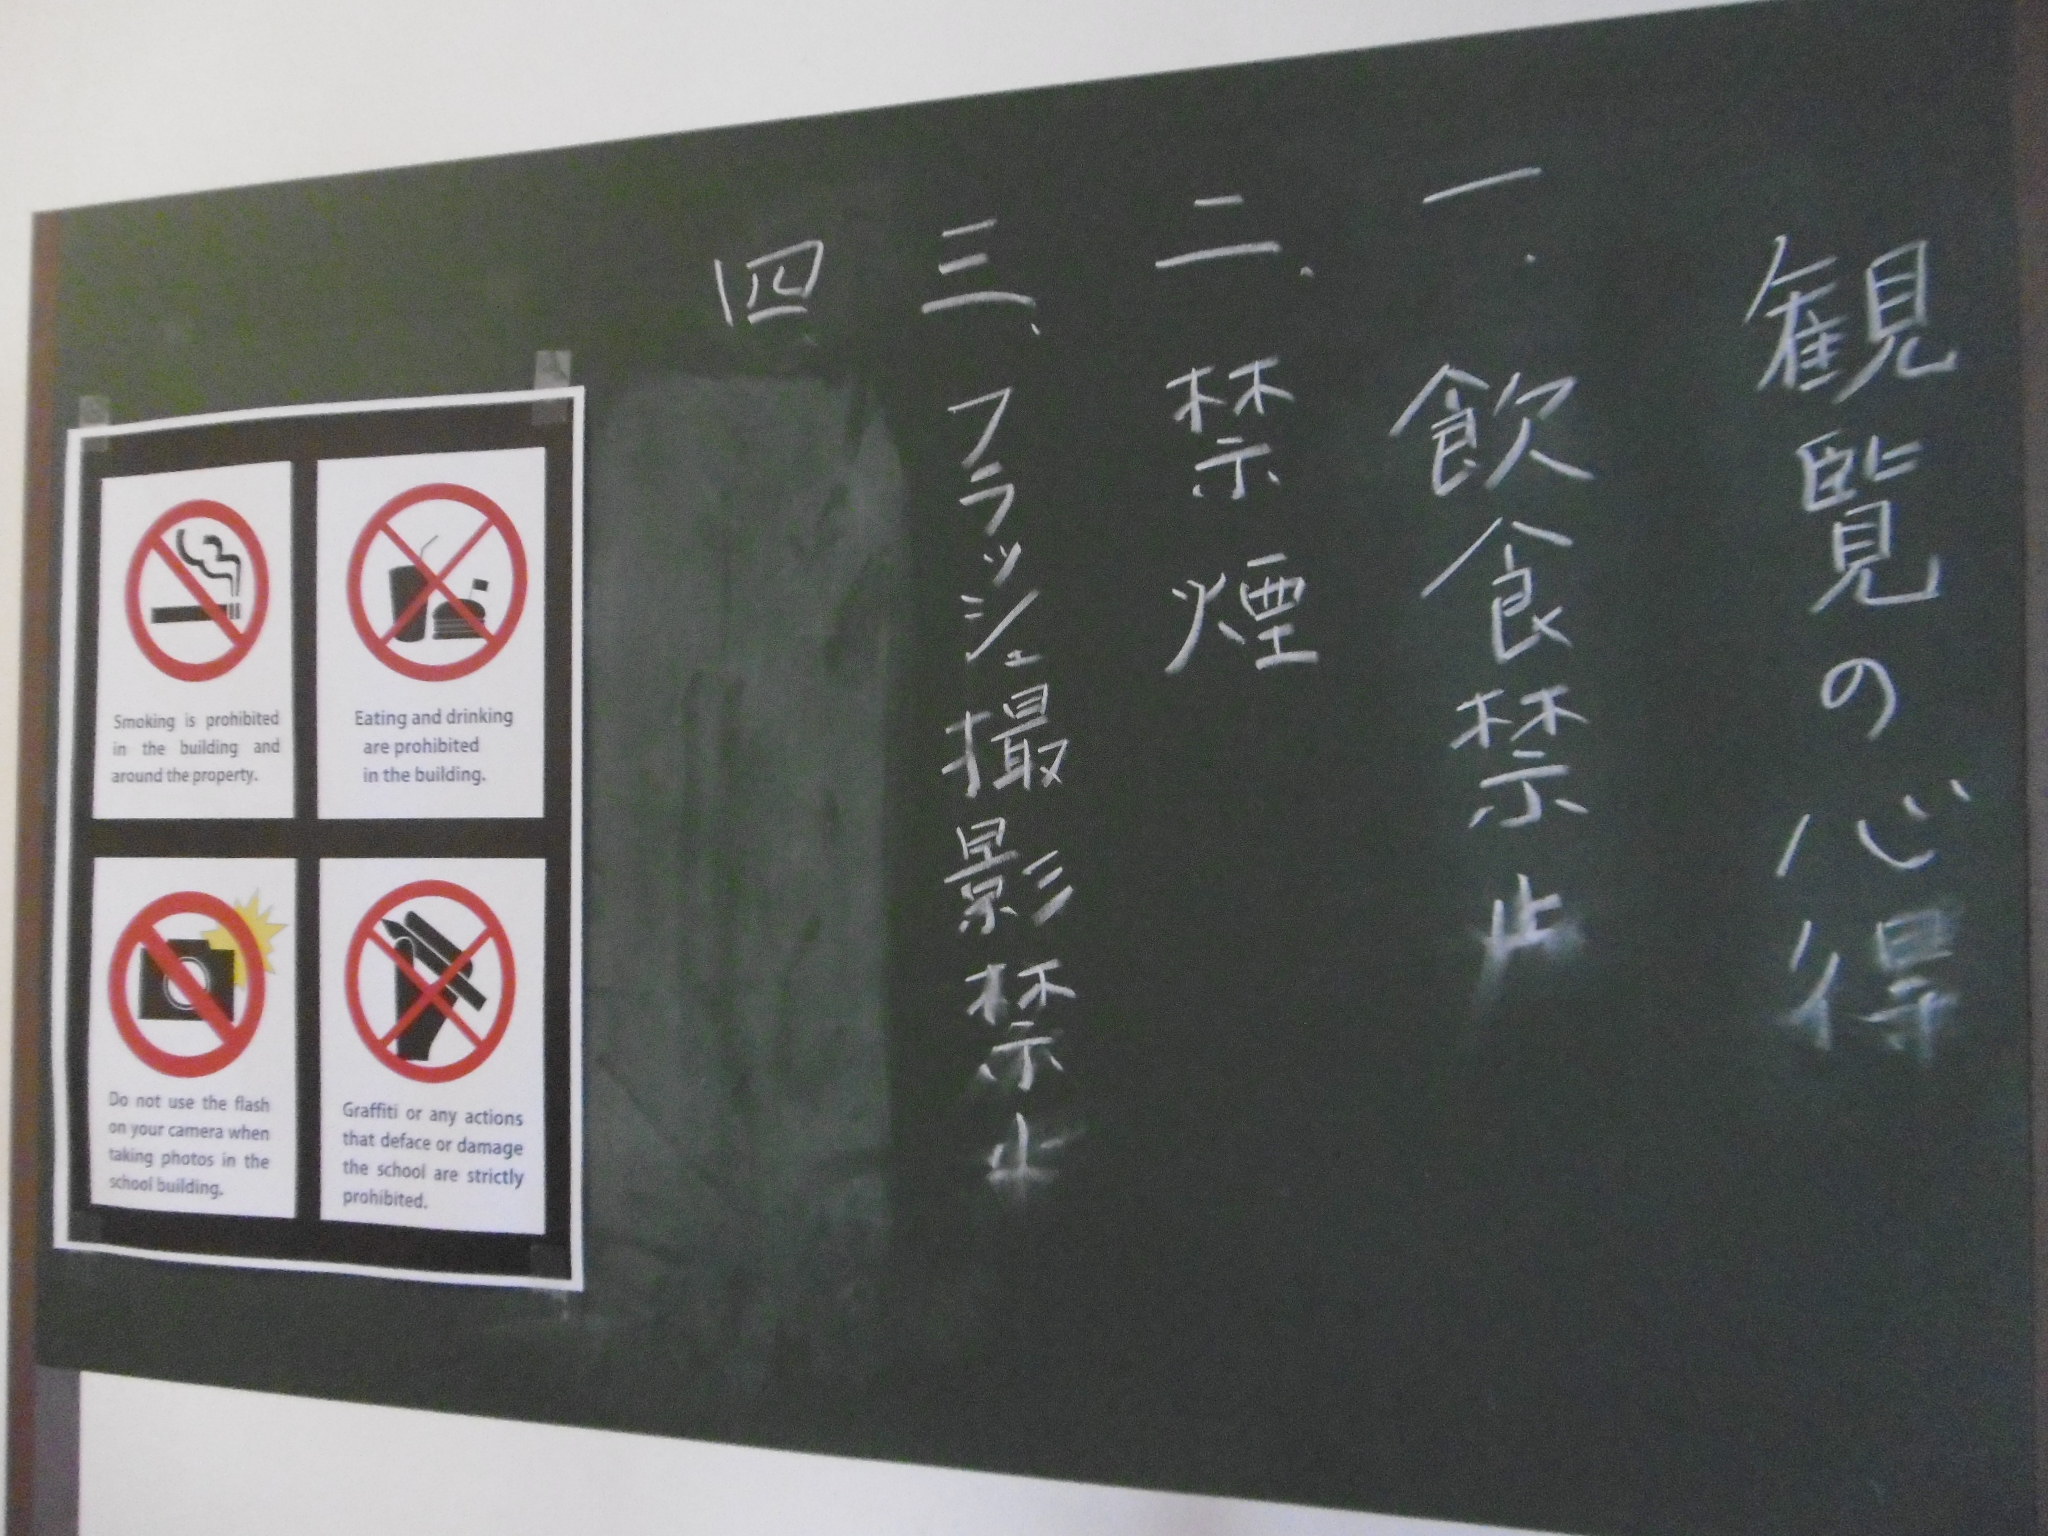 観覧の心得
一、飲食禁止
二、禁煙
三、フラッシュ撮影禁止
四、
Smoking is prohibited
in the building and
around the property.
Eating and drinking
are prohibited
in the building.
Do not use the flash
on your camera when
taking photos in the
school building.
Graffiti or any actions
that deface or damage
the school are strictly
prohibited.